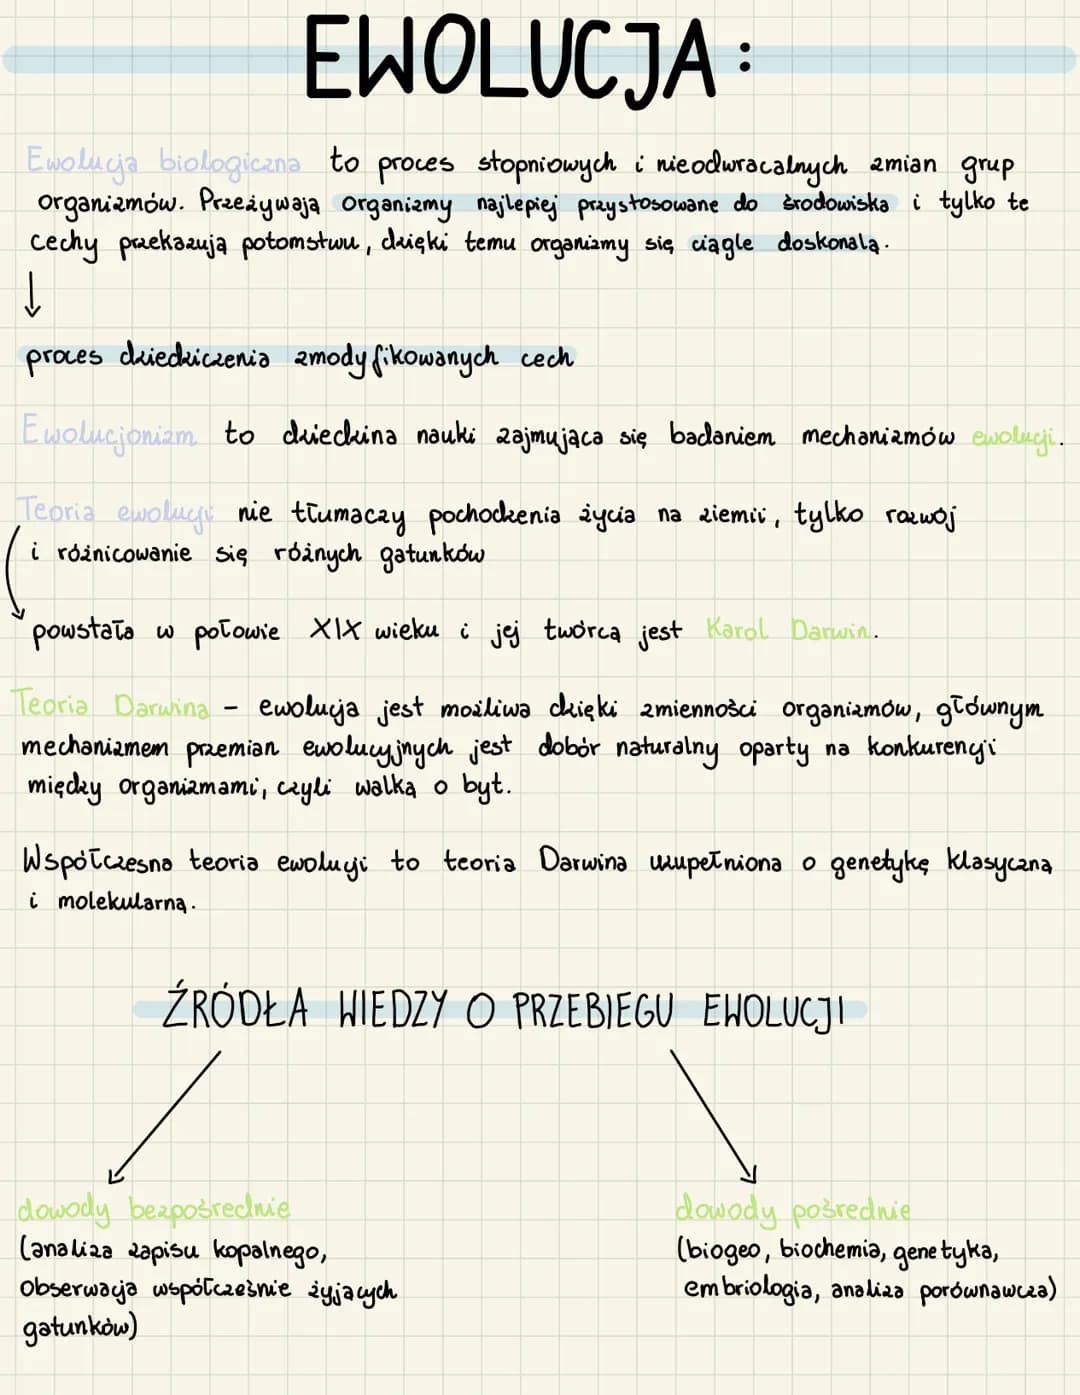 EWOLUCJA:
Ewolucja biologiczna to proces stopniowych i nieodwracalnych zmian grup
organizmów. Przeżywają organizmy najlepiej przystosowane do środowiska i tylko te
cechy przekazują potomstwu, dzięki temu organizmy się ciągle doskonalą.
↓
proces dziedziczenia zmodyfikowanych cech
Ewolucjonizm to dziedzina nauki zajmująca się badaniem mechanizmów ewolucji.
Teoria ewolucji nie tłumaczy pochodzenia życia na ziemii, tylko rozwój
i różnicowanie się różnych gatunków
powstała w połowie XIX wieku i jej twórcą jest Karol Darwin.
Teoria Darwina - ewolucja jest możliwa dzięki zmienności organizmów, głównym
mechanizmem przemian ewolucyjnych jest dobór naturalny oparty na konkurencji
między organizmami, czyli walką o byt.
Współczesna teoria ewolucji to teoria Darwina uzupełniona o genetykę klasyczną
i molekularną.
ŹRÓDŁA WIEDZY O PRZEBIEGU EWOLUCJI
dowody bezpośrednie
(analiza zapisu kopalnego,
obserwacja współcześnie żyjących
gatunków)
dowody pośrednie
(biogeo, biochemia, genetyka,
embriologia, analiza porównawcza)